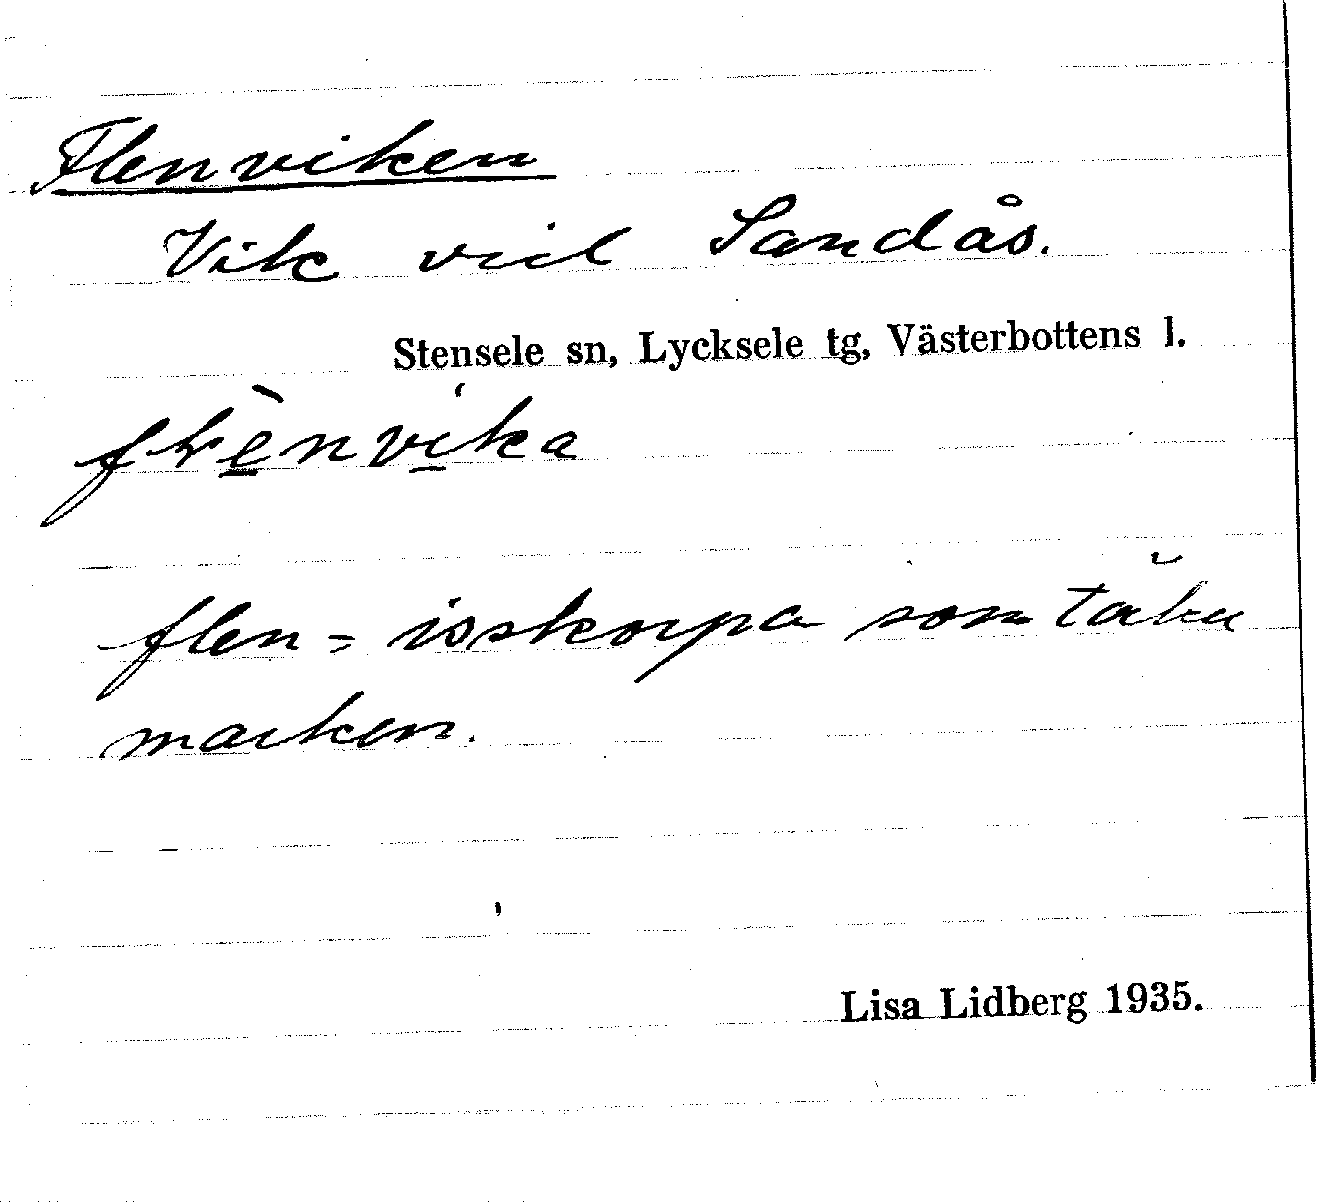 Flenviken
Vik vid Sandås.
Stensele sn, Lycksele tg, Västerbottens l.
flen = isskorpa som täku
marken.
Lisa Lidberg 1935.